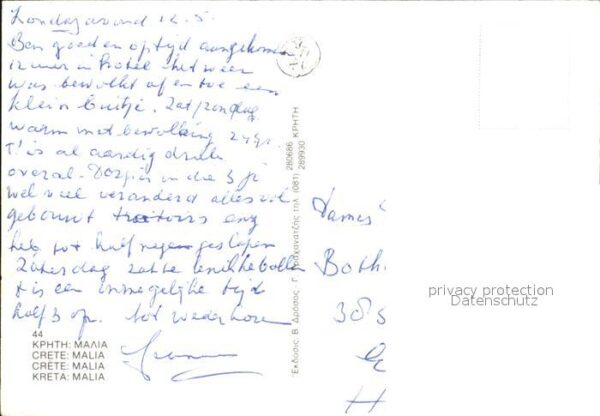 Zondagavond 12.5.
Ben goed en op tijd aangekomen
in hotel het weer
was bewolkt af en toe een
klein buitje. Zat/zondag
warm met bewolking 24 gr.
T' is al aardig druk
overal. Dorp is in die 3 jr
wel veel veranderd alles vol
gebouwt trottoirs enz
heb tot half negen geslapen
Zaterdag zat te knikkebollen
t is een onmogelijke tijd
half 3 op. tot wederhoren
44
ΚΡΗΤΗ: ΜΑΛΙΑ
CRETE: MALIA
CRETE: MALIA
KRETA: MALIA
Έκδοσις: Β. Δρόσος - Γ. τηλ. (081) 280686 289930 ΚΡΗΤΗ
Dames
Both.
385
H
privacy protection
Datenschutz